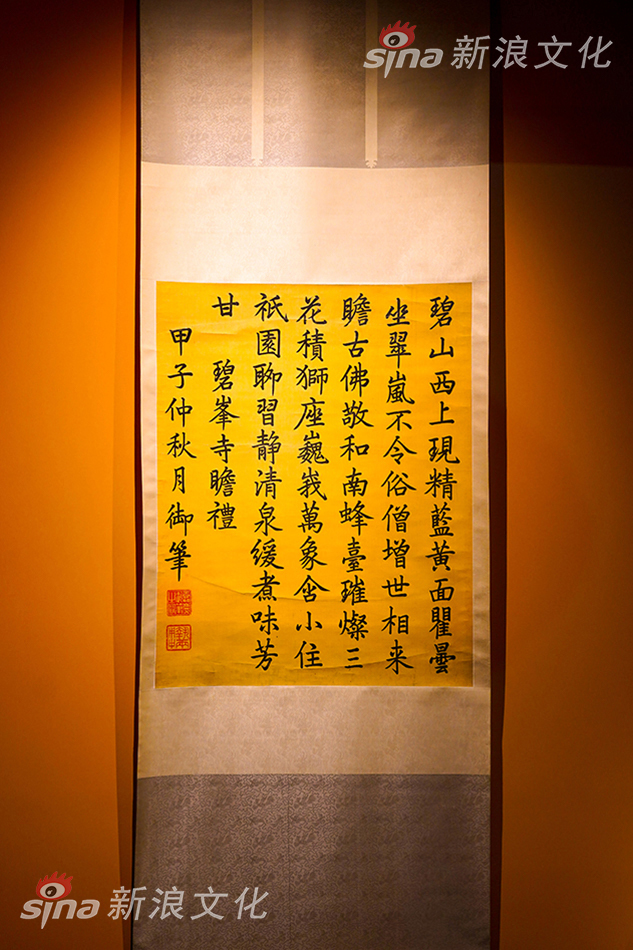 sina 新浪文化
碧山西上現精藍黃面瞿曇
坐翠嵐不令俗僧增世相来
瞻古佛敬和南蜂臺璀燦三
花積獅座巍峩萬象含小住
祇園聊習静清泉緩煮味芳
甘 碧峯寺瞻禮
甲子仲秋月御筆
sina 新浪文化